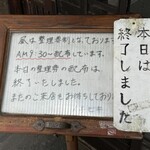 昼は整理券制となっております
AM9:30〜配布しています。
本日の整理券の配布は
終了いたしました。
またのご来店をお待ちしており
本日は
終了しました